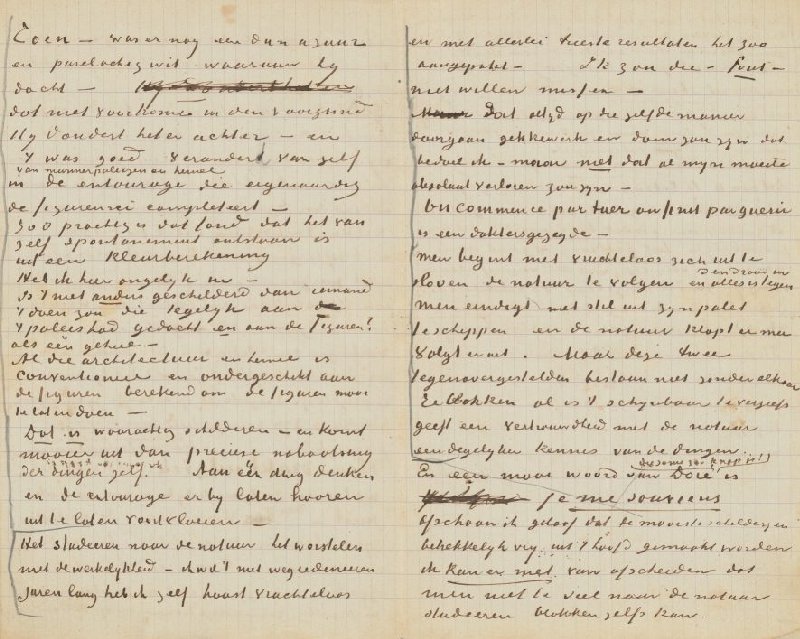 Toen – was er nog een dun azuur
en parelachtig wit – waaraan hy
dacht –
dat niet voorkomt in den voorgrond
Hy vondert het er achter – en
't was goed verandert van zelf
van marmerpaleizen en hemel
in de entourage die eigenaardig
de figurenrei completeert –
Zoo prachtig is dat fond dat het van
zelf spontanement ontstaan is
uit een kleurberekening
Heb ik hier ongelyk in –
Is 't niet anders geschilderd dan iemand
't doen zou die tegelyk aan de
't paleis had gedacht en aan de figuren?
als één geheel –
Al die architectuur en hemel is
conventioneel en ondergeschikt aan
de figuren berekend om de figuren mooi
te laten doen –
Dat is waarachtig schilderen – en komt
mooier uit dan preciese nabootsing
der dingen zelf. Aan één ding denken
en de entourage er by laten hooren
uit te laten voortvloeien –
Het studeeren naar de natuur het worstelen
met de werkelykheid – ik wil 't niet wegredeneeren
Jaren lang heb ik zelf haast vruchteloos
en met allerlei trieste resultaten het zoo
aangepakt – Ik zou die – fout –
niet willen missen –
Dat altyd op die zelfde manier
doorgaan gekkewerk en dom zou zyn dat
bedoel ik – maar niet dat al myn moeite
absoluut verloren zou zyn –
On commence par tuer on finit par guérir
is een doktersgezegde –
Men begint met vruchteloos zich uit te
sloven de natuur te volgen en alles is tegen
den draad in
men eindigt met stil uit zyn palet
te scheppen en de natuur klopt er mee
volgt er uit. Maar deze twee
tegenovergestelden bestaan niet zonder elkaar
Het blokken al is 't schynbaar te vergeefs
geeft een vertrouwdheid met de natuur
een degelyker kennis van de dingen.
En een mooi woord van Doré is
(die soms zoo knap is!)
je me souviens
Ofschoon ik geloof dat de mooiste schilderyen
betrekkelyk vry uit 't hoofd gemaakt worden
ik kan er niet van afscheiden dat
men niet te veel naar de natuur
studeeren blokken zelfs kan